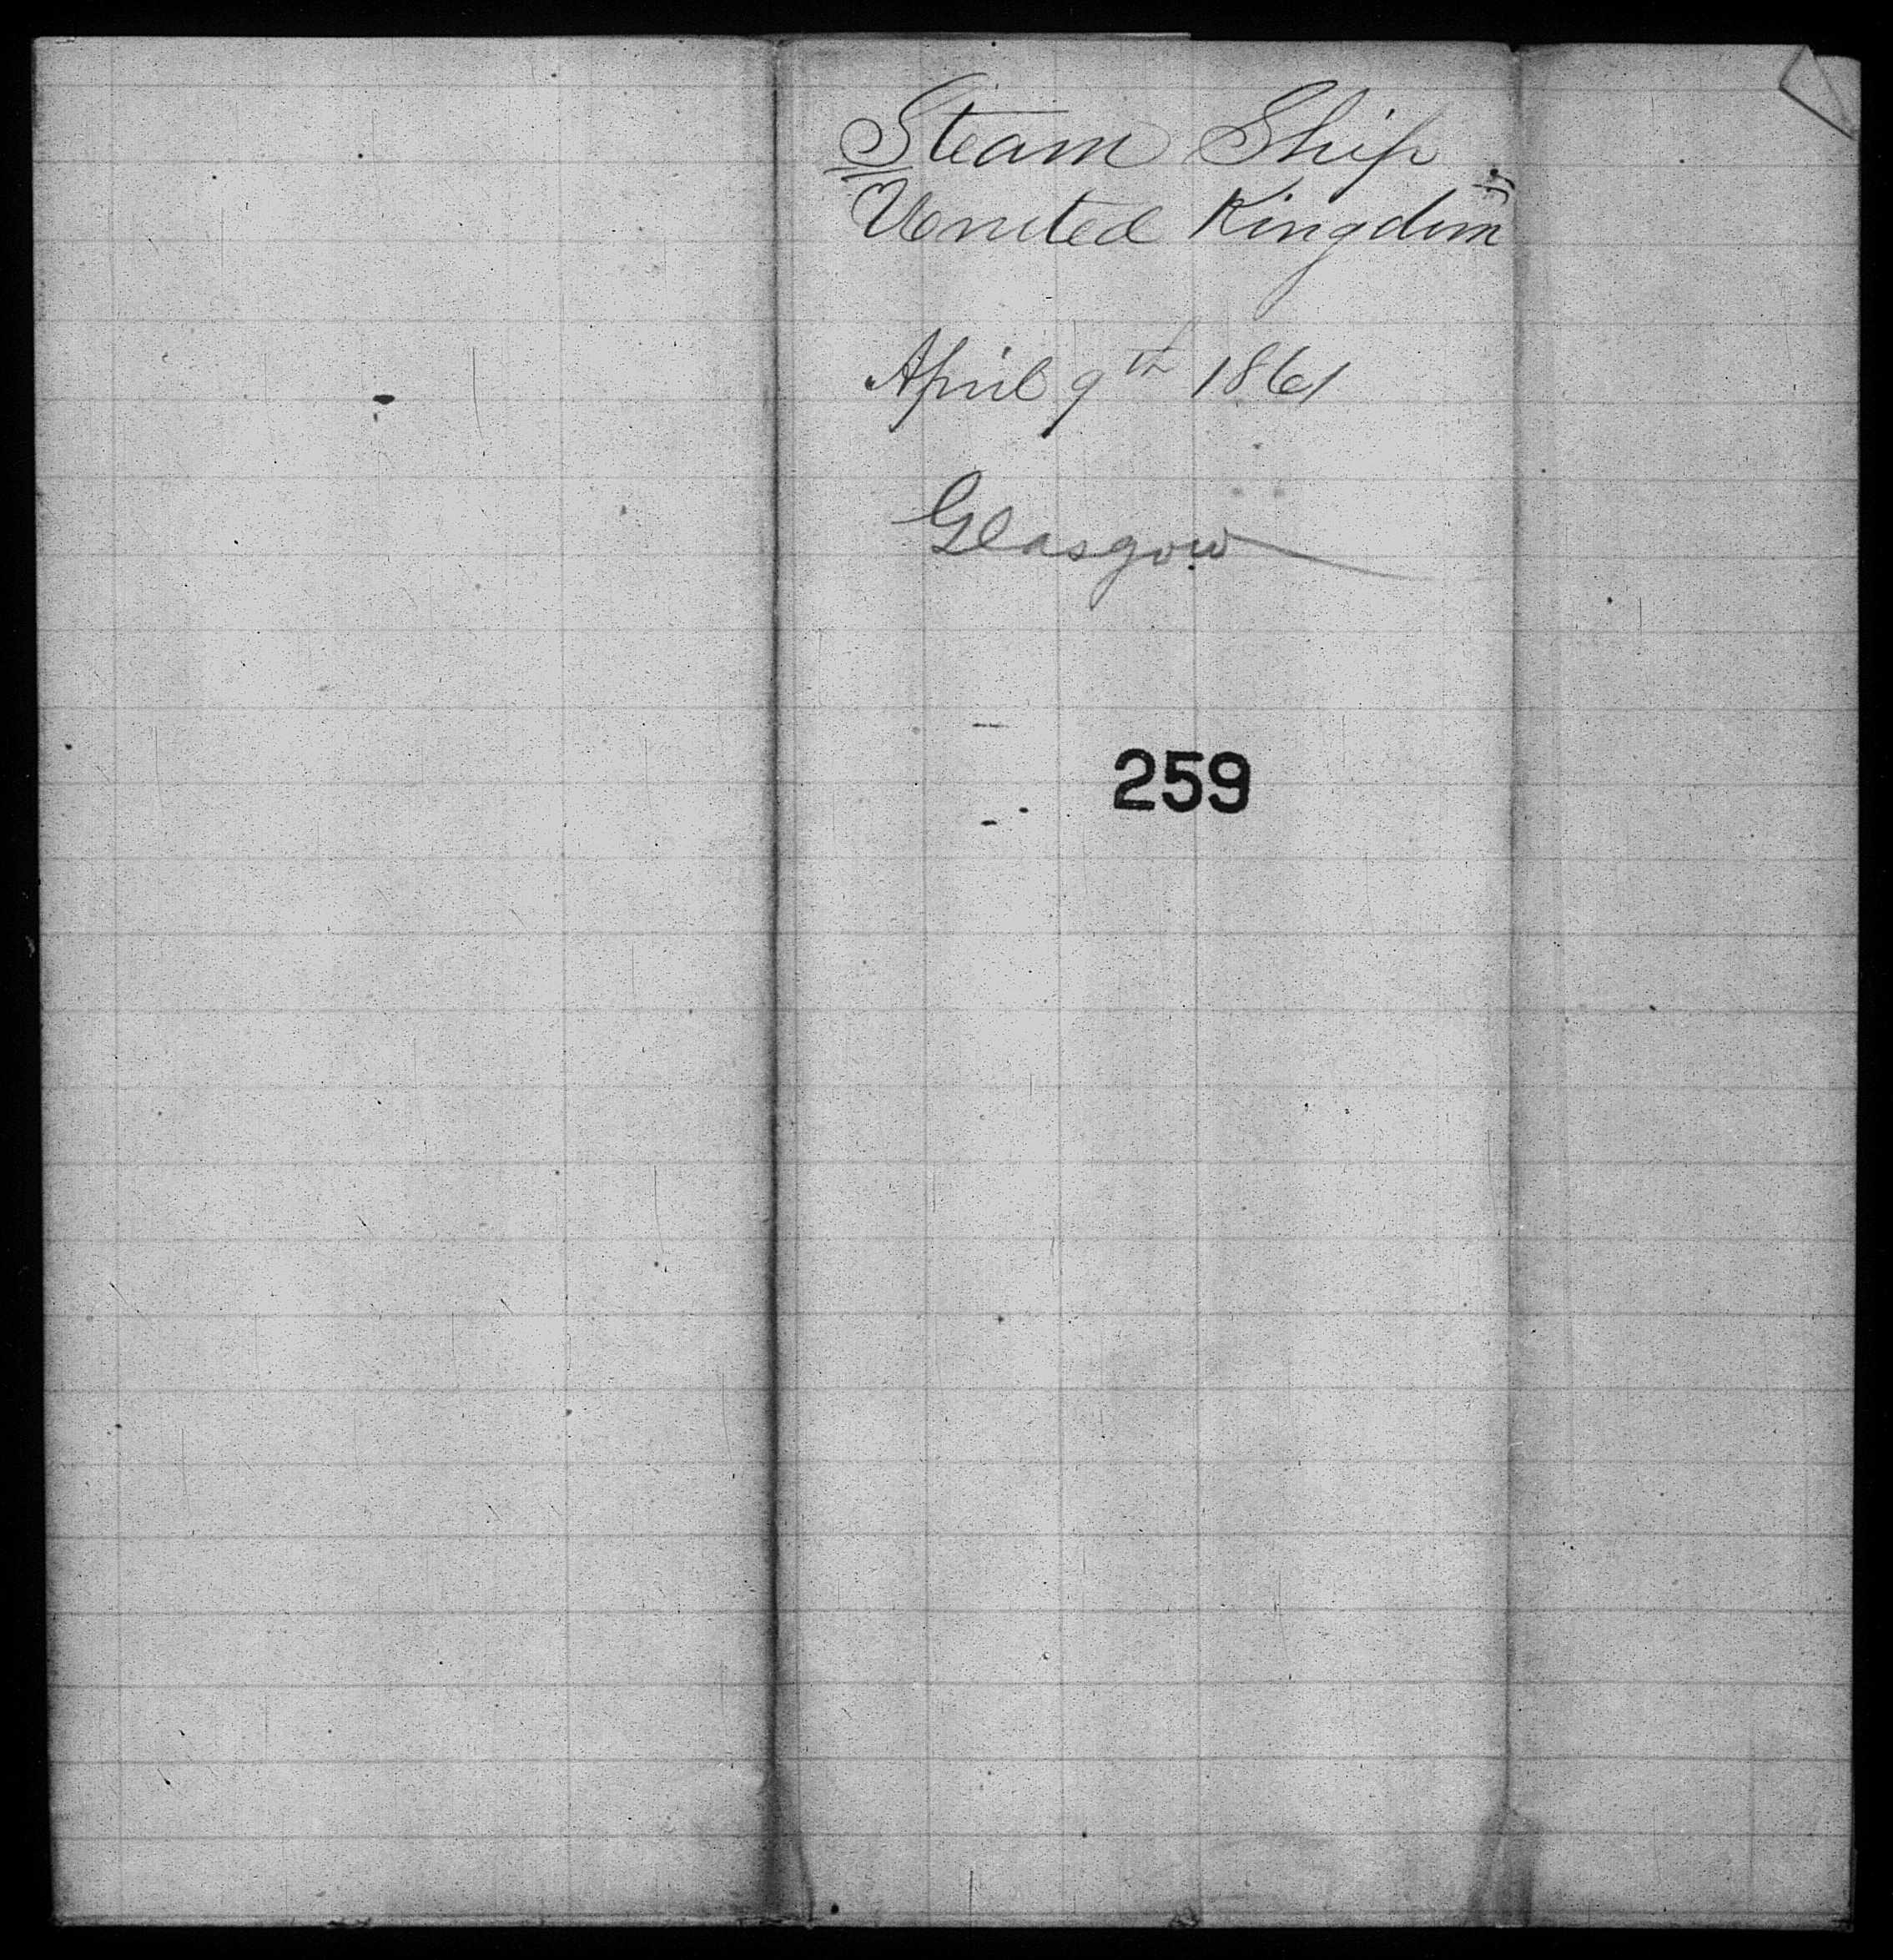 Steam Ship
"United Kingdom"
April 9th 1861
Glasgow
259